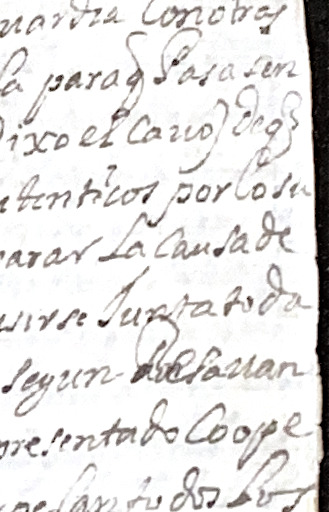 uardia Con otras
la para q̃ pasasen
Dixo el Cavo) de q̃
utenticos por lo su
parar La Causa de
usirse Junta toda
segun
presentado Coope
todos los